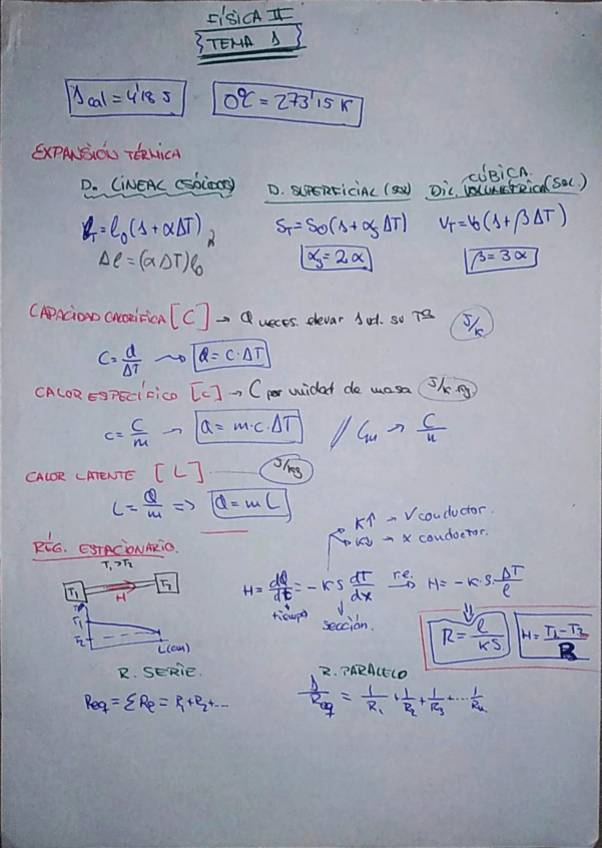 FÍSICA II
TEMA 1
1 cal = 4'18 J
0ºC = 273'15 K
EXPANSIÓN TÉRMICA
D. LINEAL (SÓLIDOS)
l_T = l_0 (1 + αΔT)
Δl = (αΔT) l_0
D. SUPERFICIAL (SOL)
S_T = S_0 (1 + α_S ΔT)
α_S = 2α
CÚBICA
Dil. VOLUMÉTRICA (SOL.)
V_T = V_0 (1 + βΔT)
β = 3α
CAPACIDAD CALORÍFICA [C] → Q neces. elevar 1 ud. su Tª J/K
C = Q/ΔT → Q = C·ΔT
CALOR ESPECÍFICO [c] → C por unidad de masa J/K·kg
c = C/m → Q = m·c·ΔT // C_m → C/n
CALOR LATENTE [L] J/kg
L = Q/m => Q = m L
RÉG. ESTACIONARIO.
T_1 > T_2
T_1 H T_2
T_1
T_2
L (cm)
K↑ → V conductor.
K↓ → X conductor.
H = dQ/dt = -K S dT/dx r.e. → H = -K·S·ΔT/l
tiempo
sección.
R = l/KS
H = T_1 - T_2/R
R. SERIE.
Req = ΣRe = R_1 + R_2 + ...
R. PARALELO
1/Req = 1/R_1 + 1/R_2 + 1/R_3 + ... 1/R_n